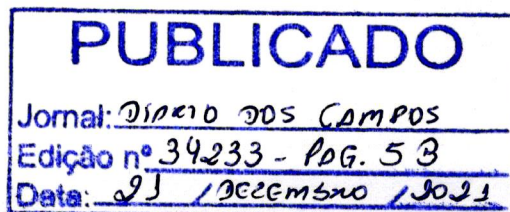 PUBLICADO
Jornal: DIÁRIO DOS CAMPOS
Edição nº 34233 - PÁG. 5 B
Data: 21 / DEZEMBRO / 2021